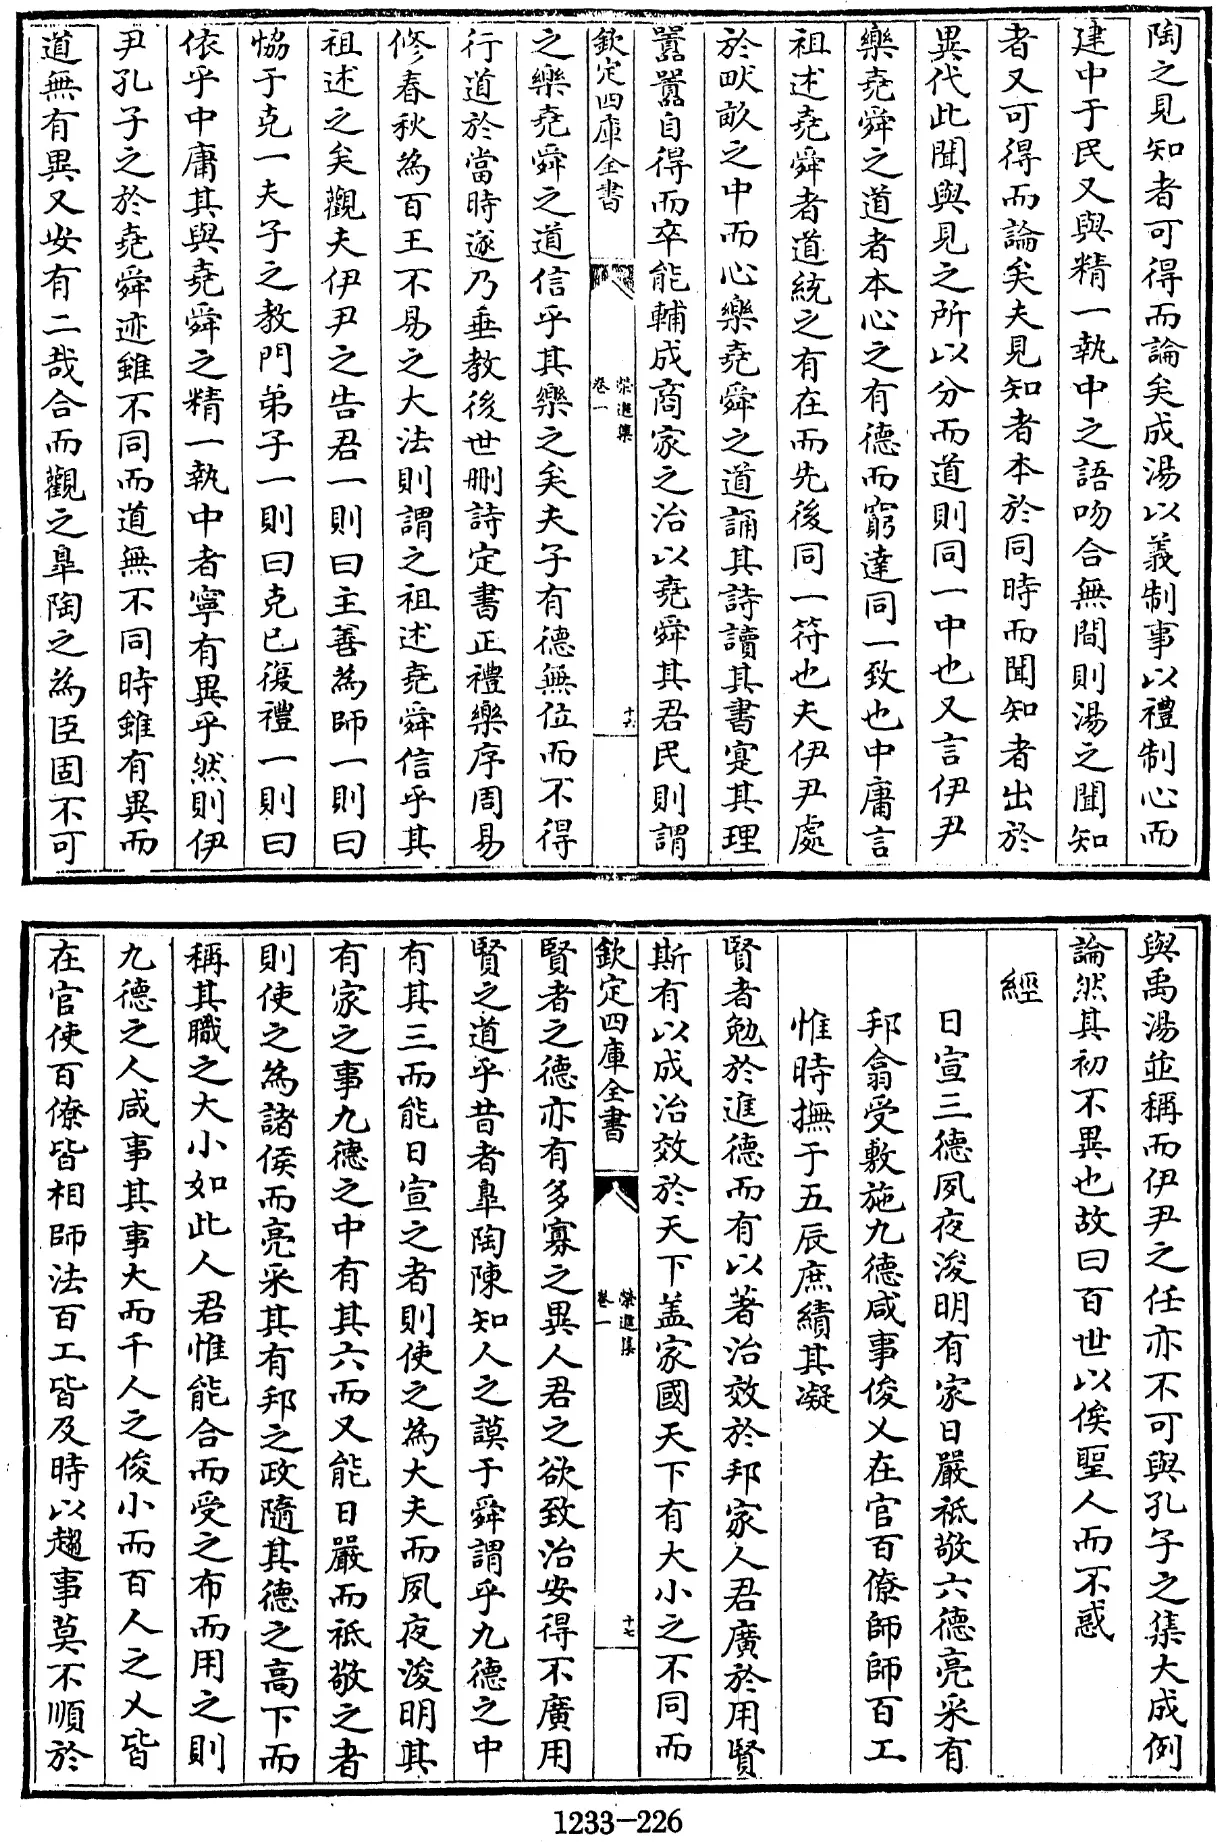 陶之見知者可得而論矣成湯以義制事以禮制心而
建中于民又與精一執中之語吻合無間則湯之聞知
者又可得而論矣夫見知者本於同時而聞知者出於
異代此聞與見之所以分而道則同一中也又言伊尹
樂堯舜之道者本心之有德而窮達同一致也中庸言
祖述堯舜者道統之有在而先後同一符也夫伊尹處
於畎畝之中而心樂堯舜之道誦其詩讀其書寔其理
囂囂自得而卒能輔成商家之治以堯舜其君民則謂
欽定四庫全書
榮進集
卷一
十六
之樂堯舜之道信乎其樂之矣夫子有德無位而不得
行道於當時遂乃垂教後世刪詩定書正禮樂序周易
修春秋為百王不易之大法則謂之祖述堯舜信乎其
祖述之矣觀夫伊尹之告君一則曰主善為師一則曰
恊于克一夫子之教門弟子一則曰克已復禮一則曰
依乎中庸其與堯舜之精一執中者寧有異乎然則伊
尹孔子之於堯舜迹雖不同而道無不同時雖有異而
道無有異又安有二哉合而觀之臯陶之為臣固不可
與禹湯並稱而伊尹之任亦不可與孔子之集大成例
論然其初不異也故曰百世以俟聖人而不惑
經
日宣三德夙夜浚明有家日嚴祗敬六德亮采有
邦翕受敷施九德咸事俊乂在官百僚師師百工
惟時撫于五辰庶績其凝
賢者勉於進德而有以著治效於邦家人君廣於用賢
斯有以成治效於天下盖家國天下有大小之不同而
欽定四庫全書
榮進集
卷一
十七
賢者之德亦有多寡之異人君之欲致治安得不廣用
賢之道乎昔者臯陶陳知人之謨于舜謂乎九德之中
有其三而能日宣之者則使之為大夫而夙夜浚明其
有家之事九德之中有其六而又能日嚴而祗敬之者
則使之為諸侯而亮采其有邦之政隨其德之高下而
稱其職之大小如此人君惟能合而受之布而用之則
九德之人咸事其事大而千人之俊小而百人之乂皆
在官使百僚皆相師法百工皆及時以趨事莫不順於
1233-226